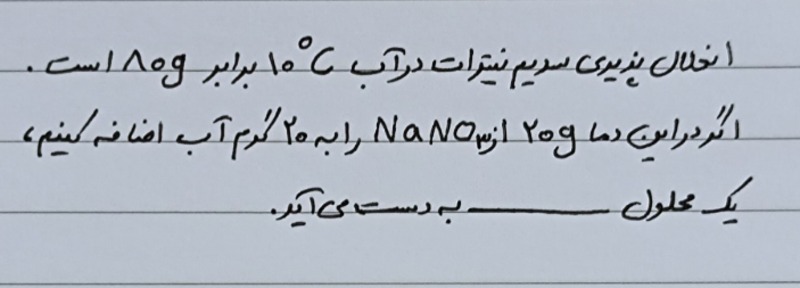 انحلال پذیری سدیم نیترات در آب ۱۰°C برابر ۸۰g است.
اگر در این دما ۲۰g از NaNO₃ را به ۲۰ گرم آب اضافه کنیم،
یک محلول ــــــــــــ به دست می آید.